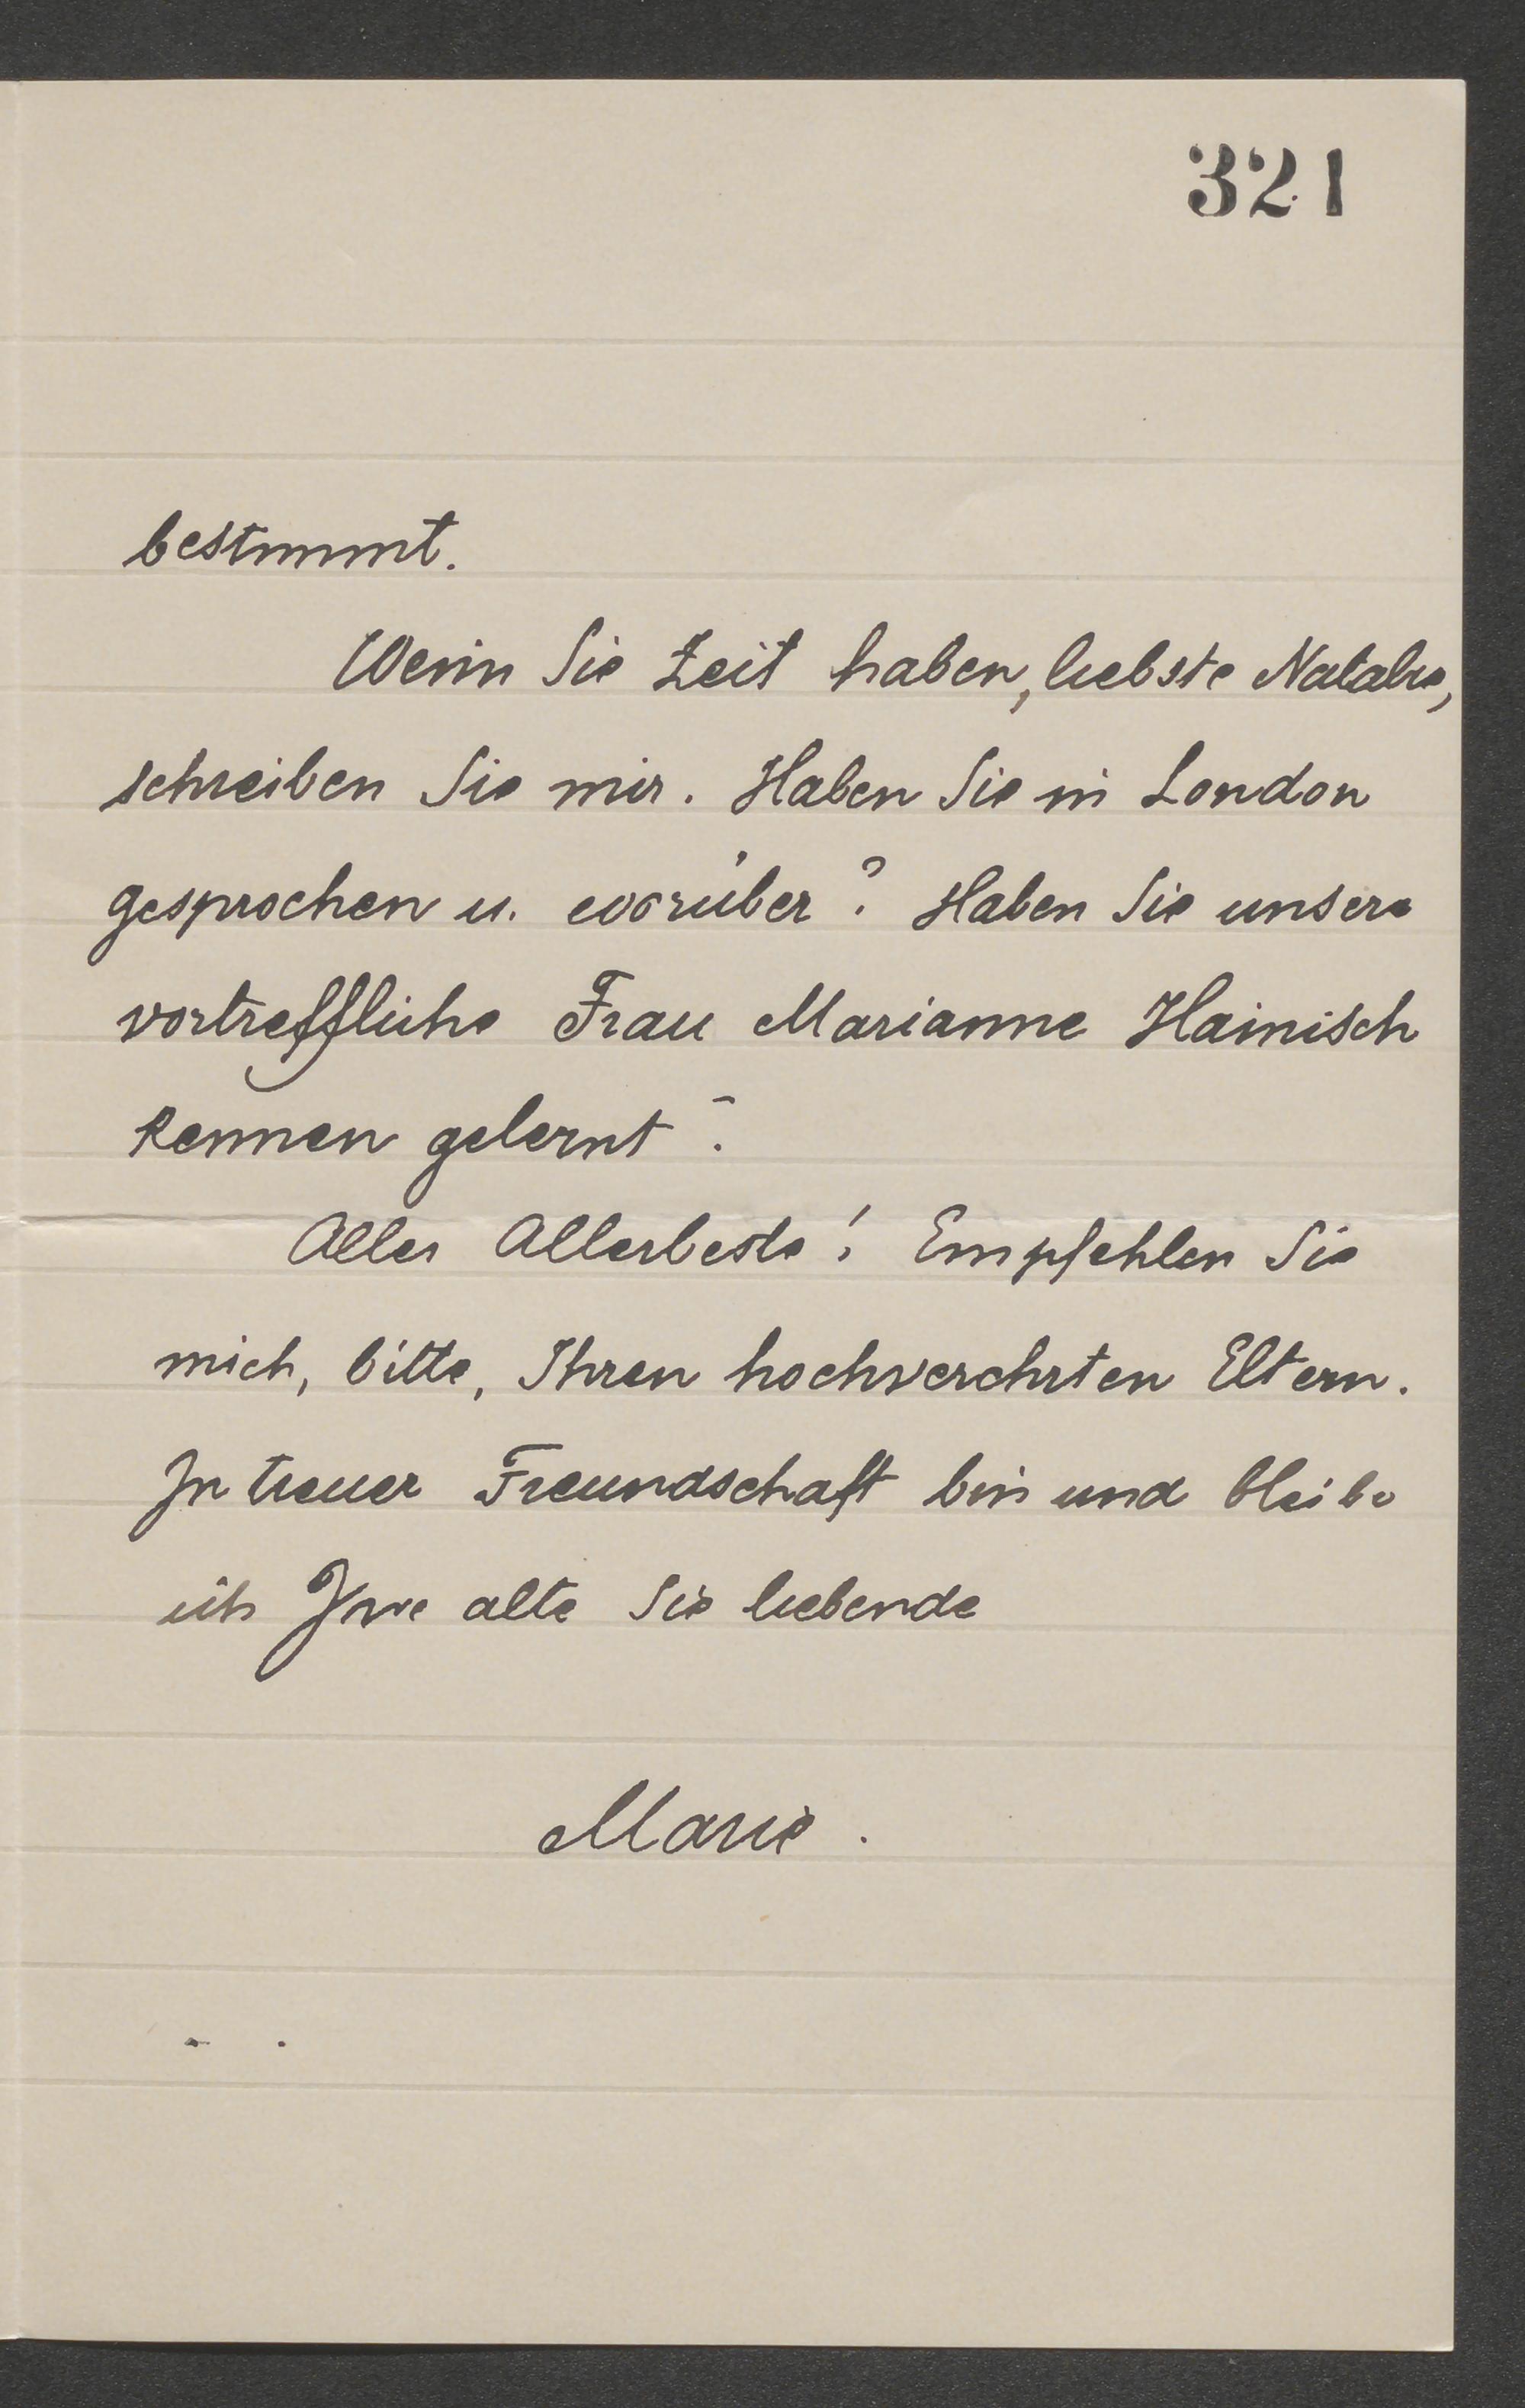 321
bestimmt.
Wenn Sie Zeit haben, liebste Natalie,
schreiben Sie mir. Haben Sie in London
gesprochen u. worüber? Haben Sie unsere
vortreffliche Frau Marianne Hainisch
kennen gelernt?
Alles Allerbeste! Empfehlen Sie
mich, bitte, Ihren hochverehrten Eltern.
In treuer Freundschaft bin und bleibe
ich Ihre alte Sie liebende
Marie.